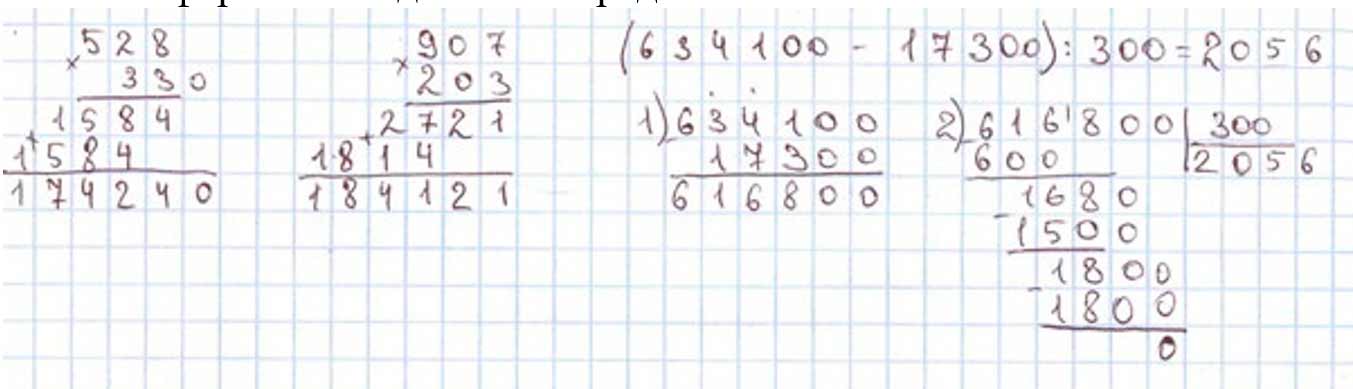 × 528
330
+ 1584
1584
174240
× 907
203
+ 2721
1814
184121
(634100 - 17300) : 300 = 2056
1) - 634100
17300
616800
2) - 616'800 | 300
600 | 2056
- 1680
1500
- 1800
1800
0